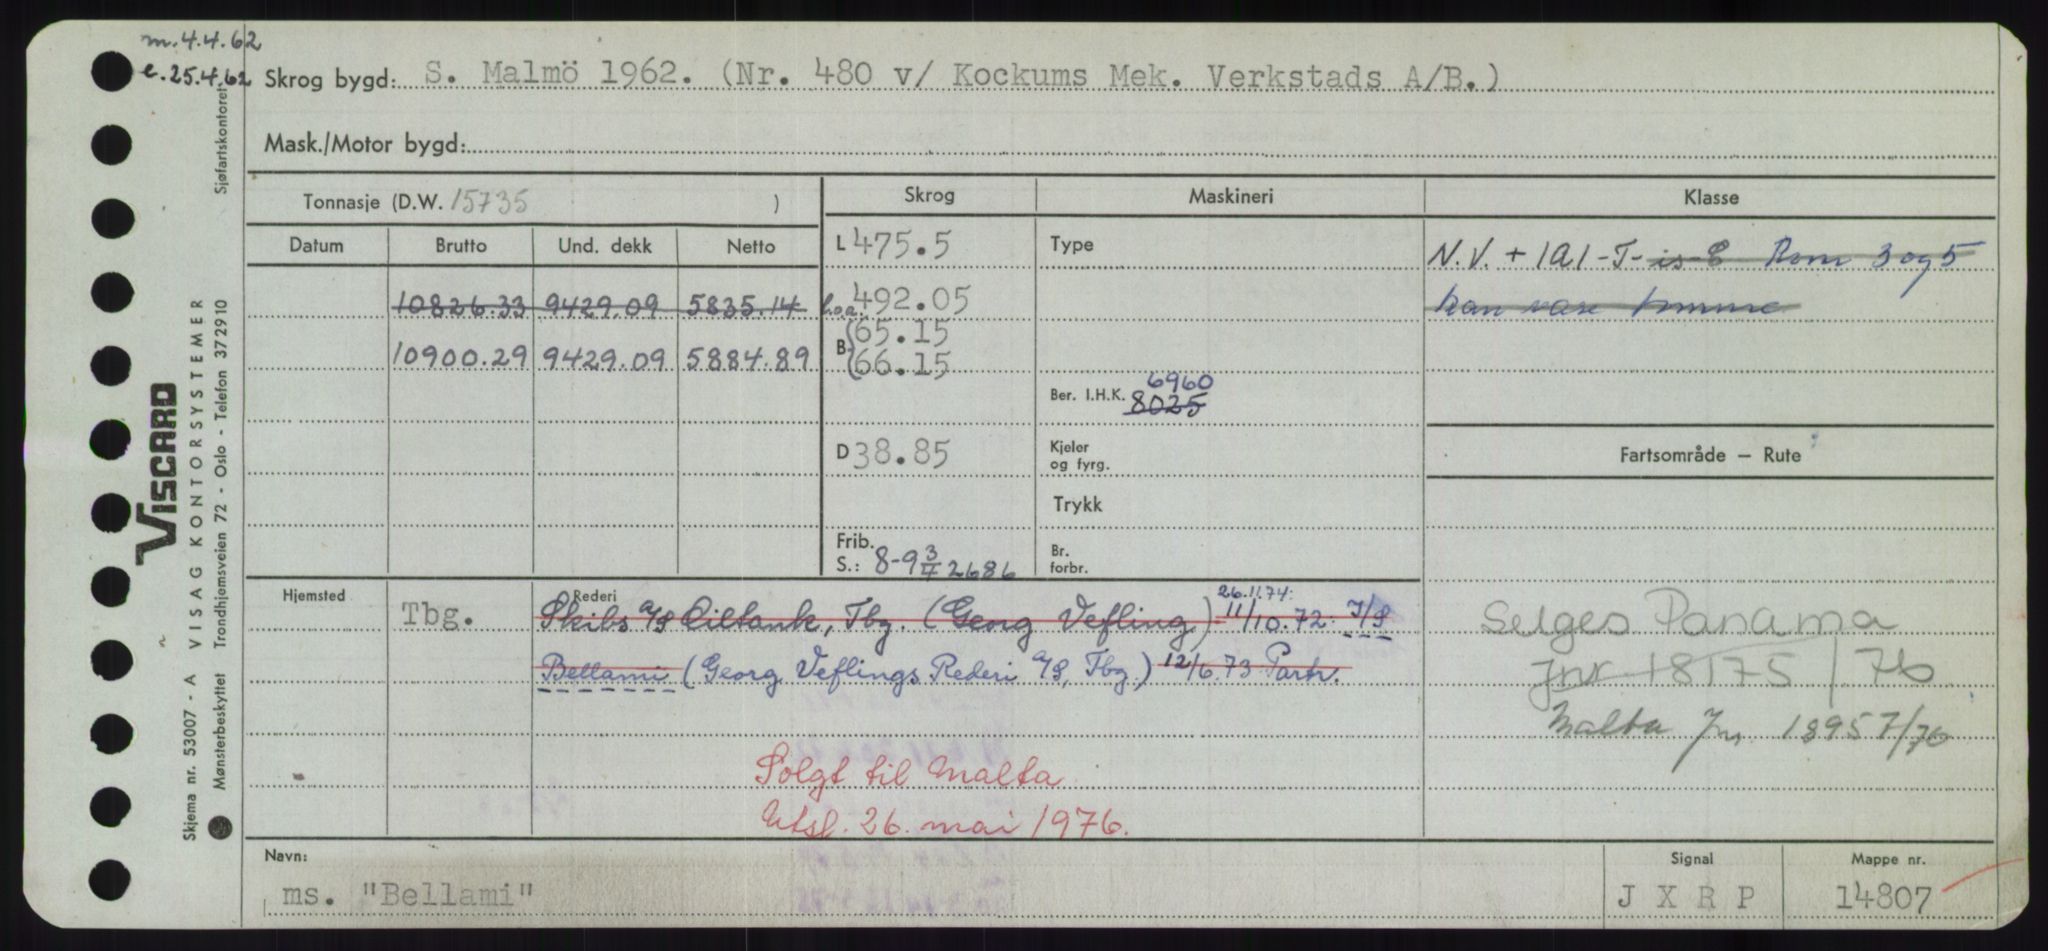 m. 4.4.62
e. 25.4.62
Skrog bygd: S. Malmö 1962. (Nr. 480 v/ Kockums Mek. Verkstads A/B.)
Mask./Motor bygd:
Tonnasje (D.W. 15735 )
Skrog Maskineri Klasse
Datum Brutto Und. dekk Netto
L 475.5 Type
N.V. + 1A1-T-is-E Rom 3 og 5
10826.33 9429.09 5835.14 l.o.a. 492.05
kan være tomme
B (65.15
10900.29 9429.09 5884.89
(66.15
Ber. I.H.K. 6960
8025
D 38.85
Kjeler og fyrg.
Fartsområde – Rute
Trykk
Frib.
S.: 8-9 3/4 2686
Br. forbr.
Hjemsted Tbg.
Rederi
26.11.74:
Skibs A/S Oiltank, Tbg. (Georg Vefling) 11/10.72: I/S
Bellami (Georg Veflings Rederi A/S, Tbg.) 12/6.73 Partr.
Selges Panama
Jnr 18175/76
Malta Jnr. 18957/76
Solgt til Malta
Utsl. 26. mai 1976.
Navn: ms. "Bellami"
Signal J X R P
Mappe nr. 14807
VISCARD
VISAG KONTORSYSTEMER
Skjema nr. 53007 - A
Mønsterbeskyttet Trondhjemsveien 72 - Oslo - Telefon 372910 Sjøfartskontoret